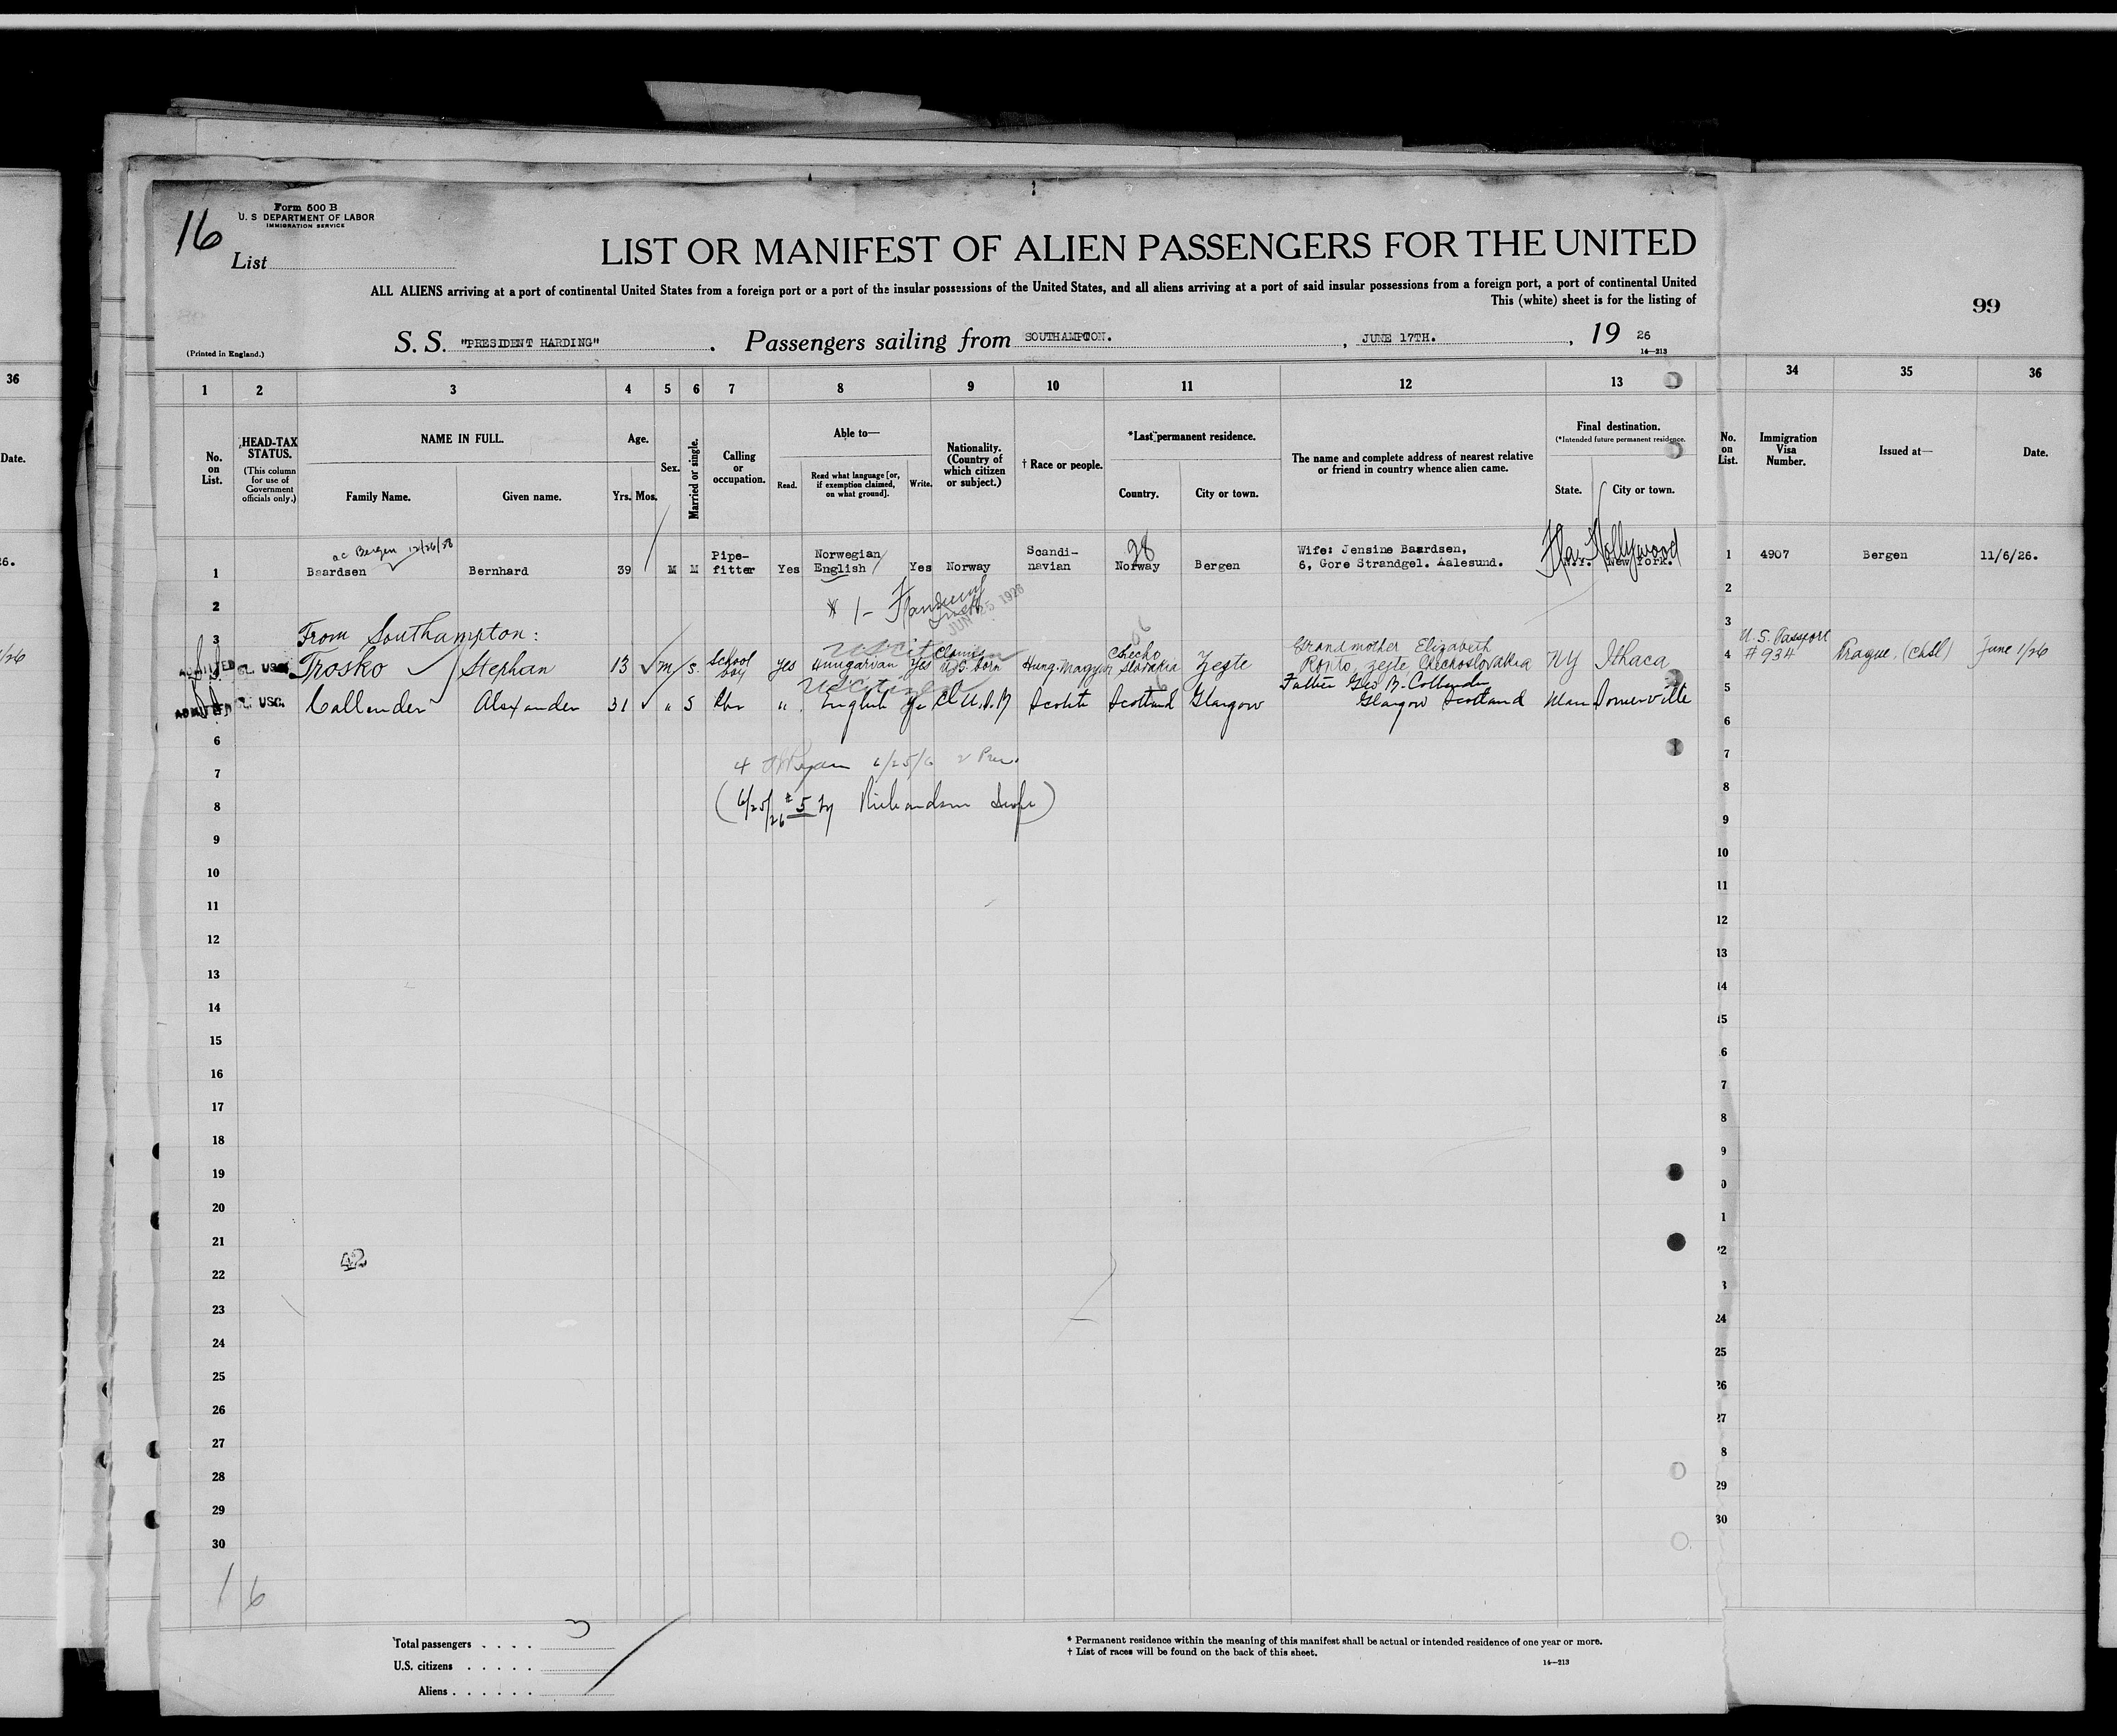 16
Form 500 B
U. S DEPARTMENT OF LABOR
IMMIGRATION SERVICE
List
LIST OR MANIFEST OF ALIEN PASSENGERS FOR THE UNITED
ALL ALIENS arriving at a port of continental United States from a foreign port or a port of the insular possessions of the United States, and all aliens arriving at a port of said insular possessions from a foreign port, a port of continental United
This (white) sheet is for the listing of
99
(Printed in England.)
S. S. "PRESIDENT HARDING". Passengers sailing from SOUTHAMPTON. , JUNE 17TH. , 19 26
14—213
36 1 2 3 4 5 6 7 8 9 10 11 12 13 34 35 36
Date.
No. on List.
HEAD-TAX STATUS.
(This column for use of Government officials only.)
NAME IN FULL.
Family Name. Given name.
Age.
Yrs. Mos.
Sex.
Married or single.
Calling or occupation.
Able to—
Read.
Read what language [or, if exemption claimed, on what ground].
Write.
Nationality. (Country of which citizen or subject.)
† Race or people.
*Last permanent residence.
Country. City or town.
The name and complete address of nearest relative or friend in country whence alien came.
Final destination.
(*Intended future permanent residence.
State. City or town.
No. on List.
Immigration Visa Number.
Issued at—
Date.
Bergen 12/26/38
1 Baardsen Bernhard 39 M M Pipe-fitter Yes Norwegian English Yes Norway Scandi-navian 28 Norway Bergen Wife: Jensine Baardsen, 6, Gore Strandgel. Aalesund. Fla Hollywood N.Y. New York. 1 4907 Bergen 11/6/26.
2
JUN 25 1926
3 From Southampton:
ADMITTED USC Trosko Stephan 13 m s School boy yes Hungarian Yes Claims U.S. born Hung-Magyar Checho Slovakia Zejte Grandmother Elizabeth Ronto, Zejte, Chechoslovakia NY Ithaca 4 U.S. Passport #934 Prague, (chsl) June 1/26
US Citizen
ADMITTED USC. Callender Alexander 31 " S " English Yes Cl U.S.B Scotch Scotland Glasgow Father Geo B. Callender Glasgow Scotland Mass Somerville
6
7
8 (6/25/26 #5 by Richardson)
9
10
11
12
13
14
15
16
17
18
19
20
21
42
22
23
24
25
26
27
28
29
30
16
Total passengers . . . . 3
U.S. citizens . . . . .
Aliens . . . . . .
* Permanent residence within the meaning of this manifest shall be actual or intended residence of one year or more.
† List of races will be found on the back of this sheet.
14—213